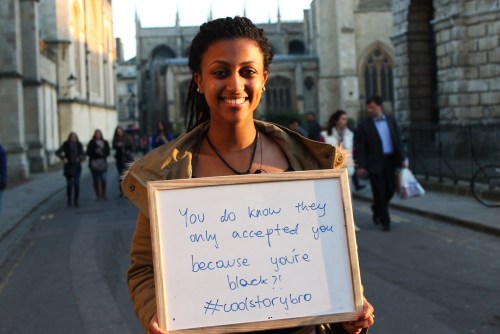 You do know they
only accepted you
because you're
black?!
#coolstorybro